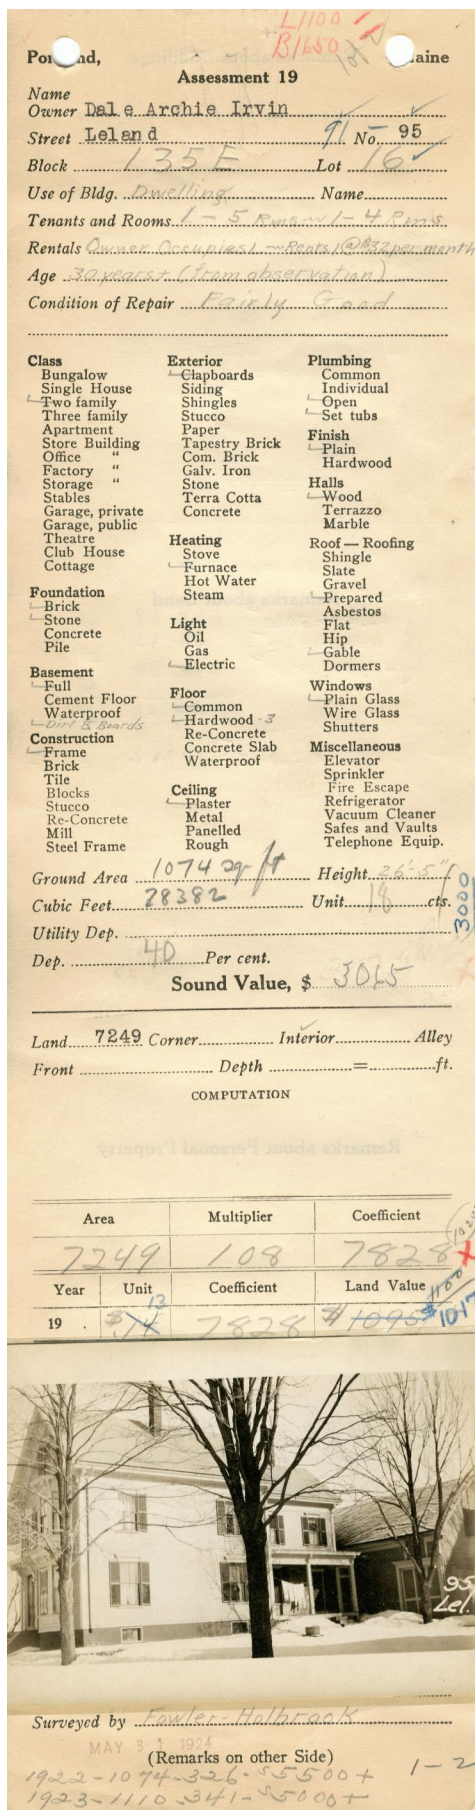 L1100
B1650
Portland, Maine
Assessment 19
Name
Owner Dale Archie Irvin
Street Leland 91 - No. 95
Block 135E Lot 16
Use of Bldg. Dwelling Name
Tenants and Rooms 1 - 5 Rms ~ 1 - 4 Rms
Rentals Owner Occupies 1 ~ Rents 1 @ $32 per month
Age 30 years + (from observation)
Condition of Repair Fairly Good
Class
Bungalow
Single House
Two family
Three family
Apartment
Store Building
Office "
Factory "
Storage "
Stables
Garage, private
Garage, public
Theatre
Club House
Cottage
Foundation
Brick
Stone
Concrete
Pile
Basement
Full
Cement Floor
Waterproof
Dirt & Boards
Construction
Frame
Brick
Tile
Blocks
Stucco
Re-Concrete
Mill
Steel Frame
Exterior
Clapboards
Siding
Shingles
Stucco
Paper
Tapestry Brick
Com. Brick
Galv. Iron
Stone
Terra Cotta
Concrete
Heating
Stove
Furnace
Hot Water
Steam
Light
Oil
Gas
Electric
Floor
Common
Hardwood - 3
Re-Concrete
Concrete Slab
Waterproof
Ceiling
Plaster
Metal
Panelled
Rough
Plumbing
Common
Individual
Open
Set tubs
Finish
Plain
Hardwood
Halls
Wood
Terrazzo
Marble
Roof — Roofing
Shingle
Slate
Gravel
Prepared
Asbestos
Flat
Hip
Gable
Dormers
Windows
Plain Glass
Wire Glass
Shutters
Miscellaneous
Elevator
Sprinkler
Fire Escape
Refrigerator
Vacuum Cleaner
Safes and Vaults
Telephone Equip.
Ground Area 1074 sq-ft Height 26'-5"
Cubic Feet 28382 Unit 18 cts.
3000
Utility Dep.
Dep. 40 Per cent.
Sound Value, $ 3065
Land 7249 Corner Interior Alley
Front Depth = ft.
COMPUTATION
Area Multiplier Coefficient
7249 108 7828
Year Unit Coefficient Land Value
1100
13
19 . $.14 7828 $1095 $1017
95
Lel.
Surveyed by Fowler-Holbrook
MAY 31 1924
(Remarks on other Side)
1-2
1922-1074-326-$5500+
1923-1110-341-$5000+